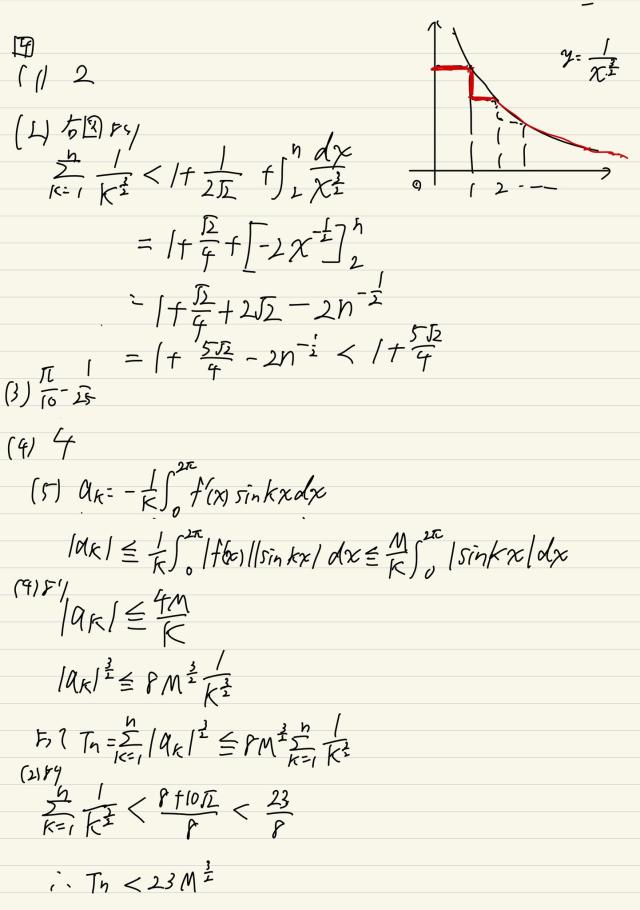 4
(1) 2
(2) 右図より
\sum_{k=1}^{n} \frac{1}{k^{\frac{3}{2}}} < 1 + \frac{1}{2\sqrt{2}} + \int_{2}^{n} \frac{dx}{x^{\frac{3}{2}}}
= 1 + \frac{\sqrt{2}}{4} + [-2x^{-\frac{1}{2}}]_{2}^{n}
= 1 + \frac{\sqrt{2}}{4} + 2\sqrt{2} - 2n^{-\frac{1}{2}}
= 1 + \frac{5\sqrt{2}}{4} - 2n^{-\frac{1}{2}} < 1 + \frac{5\sqrt{2}}{4}
y = \frac{1}{x^{\frac{3}{2}}}
0 1 2 ...
(3) \frac{π}{10} - \frac{1}{25}
(4) 4
(5) a_k = -\frac{1}{k} \int_{0}^{2π} f'(x) sin kx dx
|a_k| ≦ \frac{1}{k} \int_{0}^{2π} |f'(x)||sin kx| dx ≦ \frac{M}{k} \int_{0}^{2π} |sin kx| dx
(4)より
|a_k| ≦ \frac{4M}{k}
|a_k|^{\frac{3}{2}} ≦ 8M^{\frac{3}{2}} \frac{1}{k^{\frac{3}{2}}}
よって T_n = \sum_{k=1}^{n} |a_k|^{\frac{3}{2}} ≦ 8M^{\frac{3}{2}} \sum_{k=1}^{n} \frac{1}{k^{\frac{3}{2}}}
(2)より
\sum_{k=1}^{n} \frac{1}{k^{\frac{3}{2}}} < \frac{8+10\sqrt{2}}{8} < \frac{23}{8}
∴ T_n < 23M^{\frac{3}{2}}